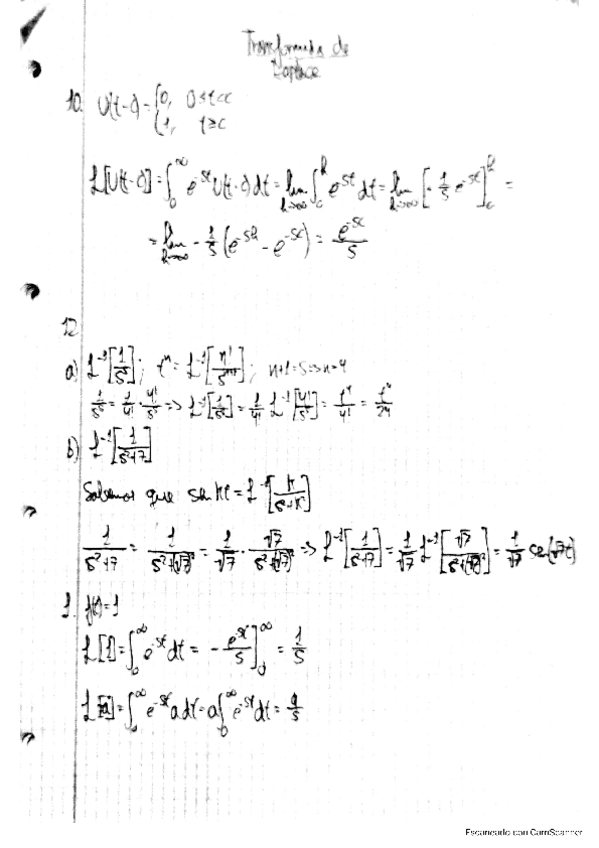 Transformada de
Laplace
10. U(t-c) = {0, 0≤t<c
{1, t≥c
L[U(t-c)] = ∫₀^∞ e^{-st} U(t-c) dt = lim_{h→∞} ∫_c^h e^{-st} dt = lim_{h→∞} [-1/s e^{-st}]_c^h =
= lim_{h→∞} -1/s (e^{-sh} - e^{-sc}) = e^{-sc}/s
12
a) L⁻¹[1/s⁵]; tⁿ = L⁻¹[n!/s^{n+1}]; n+1=5 => n=4
1/s⁵ = 1/4! · 4!/s⁵ => L⁻¹[1/s⁵] = 1/4! L⁻¹[4!/s⁵] = t⁴/4! = t⁴/24
b) L⁻¹[1/s²+7]
Sabemos que sen kt = L⁻¹[k/s²+k²]
1/s²+7 = 1/s²+(√7)² = 1/√7 · √7/s²+(√7)² => L⁻¹[1/s²+7] = 1/√7 L⁻¹[√7/s²+(√7)²] = 1/√7 sen(√7t)
1. f(t)=1
L[1] = ∫₀^∞ e^{-st} dt = -e^{-st}/s]₀^∞ = 1/s
L[a] = ∫₀^∞ e^{-st} a dt = a∫₀^∞ e^{-st} dt = a/s
Escaneado con CamScanner